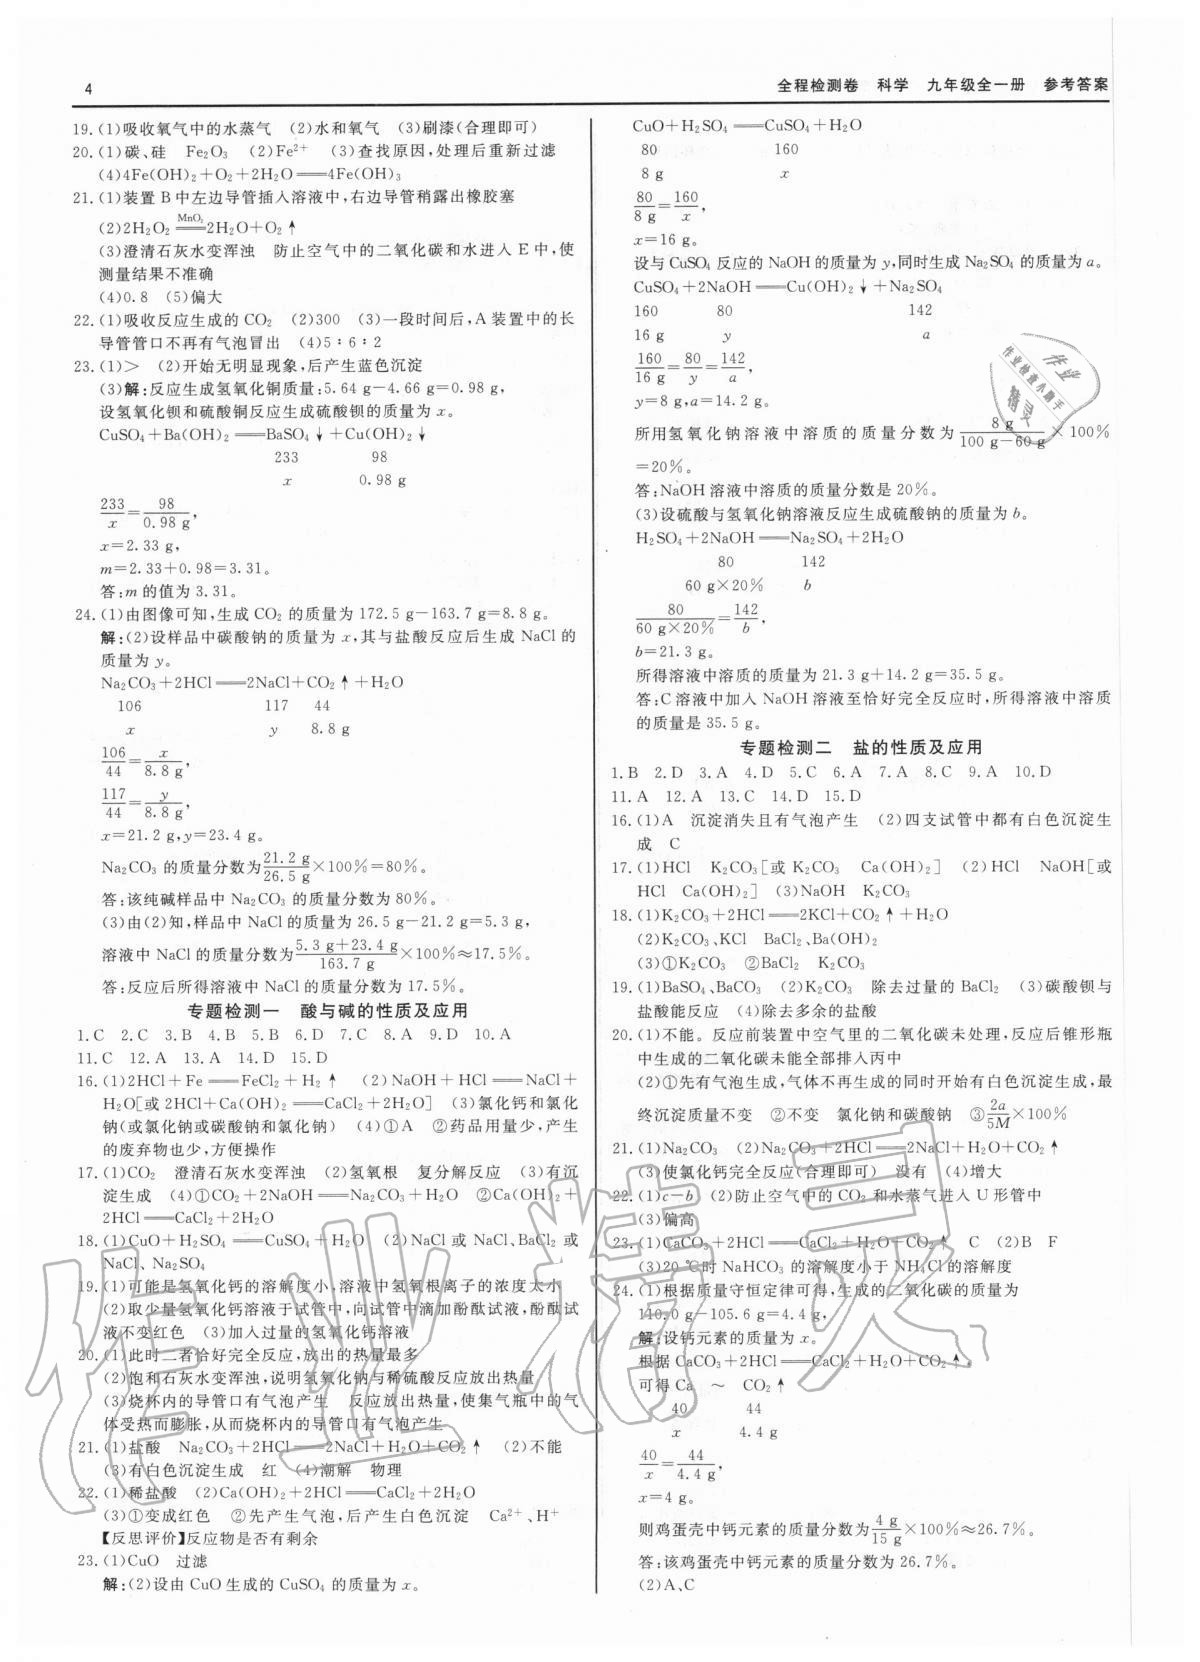 4
全程检测卷 科学 九年级全一册 参考答案
19.(1)吸收氧气中的水蒸气 (2)水和氧气 (3)刷漆(合理即可)
20.(1)碳、硅 Fe₂O₃ (2)Fe²⁺ (3)查找原因,处理后重新过滤
(4)4Fe(OH)₂+O₂+2H₂O══4Fe(OH)₃
21.(1)装置 B 中左边导管插入溶液中,右边导管稍露出橡胶塞
(2)2H₂O₂ ══(MnO₂) 2H₂O+O₂↑
(3)澄清石灰水变浑浊 防止空气中的二氧化碳和水进入 E 中,使
测量结果不准确
(4)0.8 (5)偏大
22.(1)吸收反应生成的 CO₂ (2)300 (3)一段时间后,A 装置中的长
导管管口不再有气泡冒出 (4)5∶6∶2
23.(1)> (2)开始无明显现象,后产生蓝色沉淀
(3)解:反应生成氢氧化铜质量:5.64 g-4.66 g=0.98 g,
设氢氧化钡和硫酸铜反应生成硫酸钡的质量为 x。
CuSO₄+Ba(OH)₂══BaSO₄↓+Cu(OH)₂↓
233 98
x 0.98 g
233/x=98/0.98 g,
x=2.33 g,
m=2.33+0.98=3.31。
答:m 的值为 3.31。
24.(1)由图像可知,生成 CO₂ 的质量为 172.5 g-163.7 g=8.8 g。
解:(2)设样品中碳酸钠的质量为 x,其与盐酸反应后生成 NaCl 的
质量为 y。
Na₂CO₃+2HCl══2NaCl+CO₂↑+H₂O
106 117 44
x y 8.8 g
106/44=x/8.8 g,
117/44=y/8.8 g,
x=21.2 g,y=23.4 g。
Na₂CO₃ 的质量分数为 21.2 g/26.5 g×100%=80%。
答:该纯碱样品中 Na₂CO₃ 的质量分数为 80%。
(3)由(2)知,样品中 NaCl 的质量为 26.5 g-21.2 g=5.3 g,
溶液中 NaCl 的质量分数为 5.3 g+23.4 g/163.7 g×100%≈17.5%。
答:反应后所得溶液中 NaCl 的质量分数为 17.5%。
专题检测一 酸与碱的性质及应用
1.C 2.C 3.B 4.B 5.B 6.D 7.C 8.A 9.D 10.A
11.C 12.A 13.A 14.D 15.D
16.(1)2HCl+Fe══FeCl₂+H₂↑ (2)NaOH+HCl══NaCl+
H₂O[或 2HCl+Ca(OH)₂══CaCl₂+2H₂O] (3)氯化钙和氯化
钠(或氯化钠或碳酸钠和氯化钠) (4)①A ②药品用量少,产生
的废弃物也少,方便操作
17.(1)CO₂ 澄清石灰水变浑浊 (2)氢氧根 复分解反应 (3)有沉
淀生成 (4)①CO₂+2NaOH══Na₂CO₃+H₂O ②Ca(OH)₂+
2HCl══CaCl₂+2H₂O
18.(1)CuO+H₂SO₄══CuSO₄+H₂O (2)NaCl 或 NaCl、BaCl₂ 或
NaCl、Na₂SO₄
19.(1)可能是氢氧化钙的溶解度小,溶液中氢氧根离子的浓度太小
(2)取少量氢氧化钙溶液于试管中,向试管中滴加酚酞试液,酚酞试
液不变红色 (3)加入过量的氢氧化钙溶液
20.(1)此时二者恰好完全反应,放出的热量最多
(2)饱和石灰水变浑浊,说明氢氧化钠与稀硫酸反应放出热量
(3)烧杯内的导管口有气泡产生 反应放出热量,使集气瓶中的气
体受热而膨胀,从而烧杯内的导管口有气泡产生
21.(1)盐酸 Na₂CO₃+2HCl══2NaCl+H₂O+CO₂↑ (2)不能
(3)有白色沉淀生成 红 (4)潮解 物理
22.(1)稀盐酸 (2)Ca(OH)₂+2HCl══CaCl₂+2H₂O
(3)①变成红色 ②先产生气泡,后产生白色沉淀 Ca²⁺、H⁺
【反思评价】反应物是否有剩余
23.(1)CuO 过滤
解:(2)设由 CuO 生成的 CuSO₄ 的质量为 x。
CuO+H₂SO₄══CuSO₄+H₂O
80 160
8 g x
80/8 g=160/x,
x=16 g。
设与 CuSO₄ 反应的 NaOH 的质量为 y,同时生成 Na₂SO₄ 的质量为 a。
CuSO₄+2NaOH══Cu(OH)₂↓+Na₂SO₄
160 80 142
16 g y a
160/16 g=80/y=142/a,
y=8 g,a=14.2 g。
所用氢氧化钠溶液中溶质的质量分数为 8 g/100 g-60 g×100%
=20%。
答:NaOH 溶液中溶质的质量分数是 20%。
(3)设硫酸与氢氧化钠溶液反应生成硫酸钠的质量为 b。
H₂SO₄+2NaOH══Na₂SO₄+2H₂O
80 142
60 g×20% b
80/60 g×20%=142/b,
b=21.3 g。
所得溶液中溶质的质量为 21.3 g+14.2 g=35.5 g。
答:C 溶液中加入 NaOH 溶液至恰好完全反应时,所得溶液中溶质
的质量是 35.5 g。
专题检测二 盐的性质及应用
1.B 2.D 3.A 4.D 5.C 6.A 7.A 8.C 9.A 10.D
11.A 12.A 13.C 14.D 15.D
16.(1)A 沉淀消失且有气泡产生 (2)四支试管中都有白色沉淀生
成 C
17.(1)HCl K₂CO₃[或 K₂CO₃ Ca(OH)₂] (2)HCl NaOH[或
HCl Ca(OH)₂] (3)NaOH K₂CO₃
18.(1)K₂CO₃+2HCl══2KCl+CO₂↑+H₂O
(2)K₂CO₃、KCl BaCl₂、Ba(OH)₂
(3)①K₂CO₃ ②BaCl₂ K₂CO₃
19.(1)BaSO₄、BaCO₃ (2)K₂CO₃ 除去过量的 BaCl₂ (3)碳酸钡与
盐酸能反应 (4)除去多余的盐酸
20.(1)不能。反应前装置中空气里的二氧化碳未处理,反应后锥形瓶
中生成的二氧化碳未能全部排入丙中
(2)①先有气泡生成,气体不再生成的同时开始有白色沉淀生成,最
终沉淀质量不变 ②不变 氯化钠和碳酸钠 ③2a/5M×100%
21.(1)Na₂CO₃ (2)Na₂CO₃+2HCl══2NaCl+H₂O+CO₂↑
(3)使氯化钙完全反应(合理即可) 没有 (4)增大
22.(1)c-b (2)防止空气中的 CO₂ 和水蒸气进入 U 形管中
(3)偏高
23.(1)CaCO₃+2HCl══CaCl₂+H₂O+CO₂↑ C (2)B F
(3)20 ℃时 NaHCO₃ 的溶解度小于 NH₄Cl 的溶解度
24.(1)根据质量守恒定律可得,生成的二氧化碳的质量为
110.0 g-105.6 g=4.4 g,
解:设钙元素的质量为 x。
根据 CaCO₃+2HCl══CaCl₂+H₂O+CO₂↑,
可得 Ca ~ CO₂↑
40 44
x 4.4 g
40/x=44/4.4 g,
x=4 g。
则鸡蛋壳中钙元素的质量分数为 4 g/15 g×100%≈26.7%。
答:该鸡蛋壳中钙元素的质量分数为 26.7%。
(2)A、C
作业
作业检查小助手
精灵
作业精灵